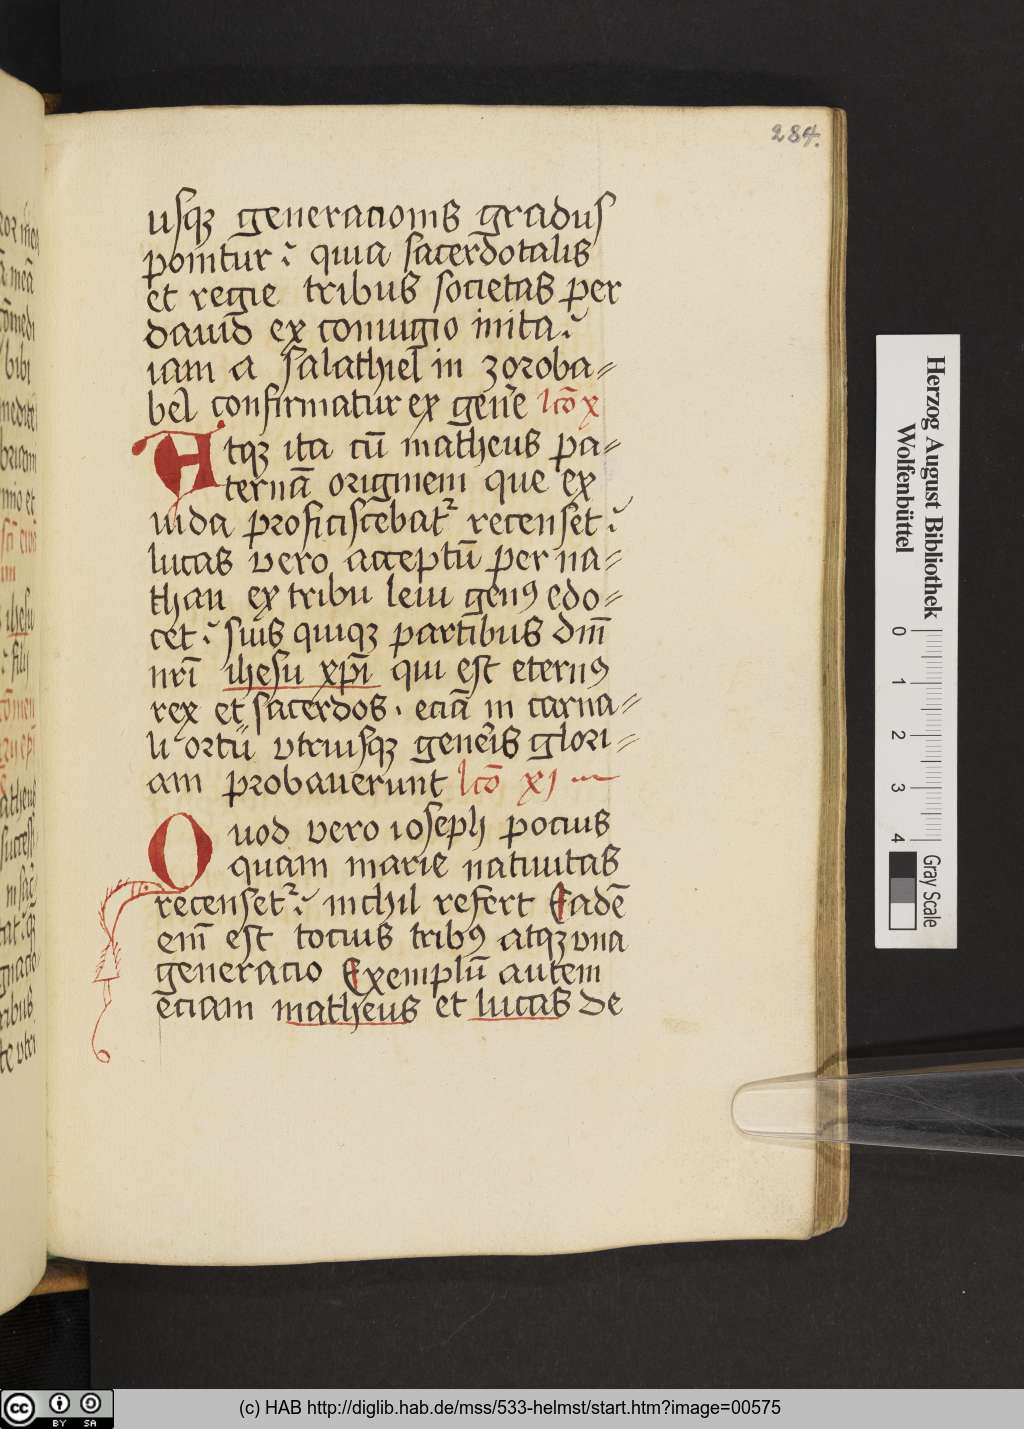 284.
usqꝫ generacionis gradus
ponitur ꝛ̃ quia sacerdotalis
et regie tribus societas per
dauid ex coniugio inita ꝛ̃
iam a salathiel in zoroba⸗
bel confirmatur ex gen̄e lcō x
Atqꝫ ita cū matheus pa⸗
ternā originem que ex
iuda proficiscebat᷑ recenset ꝛ̃
lucas vero acceptū per na⸗
than ex tribu leui genꝰ edo⸗
cet ꝛ̃ suis quiqꝫ partibus dn̄i
nr̄i ihesu xp̄i qui est eternꝰ
rex et sacerdos · eciā in carna⸗
li ortu vtriusqꝫ gen̄is glori⸗
am probauerunt lcō xi
Quod vero ioseph pocius
quam marie natiuitas
recenset᷑ ꝛ̃ nichil refert Eadē
eni̅ est tocius tribꝰ atqꝫ vna
generacio Exemplū autem
eciam matheus et lucas de
Herzog August Bibliothek
Wolfenbüttel
0 1 2 3 4
Gray Scale
cc BY SA
(c) HAB http://diglib.hab.de/mss/533-helmst/start.htm?image=00575